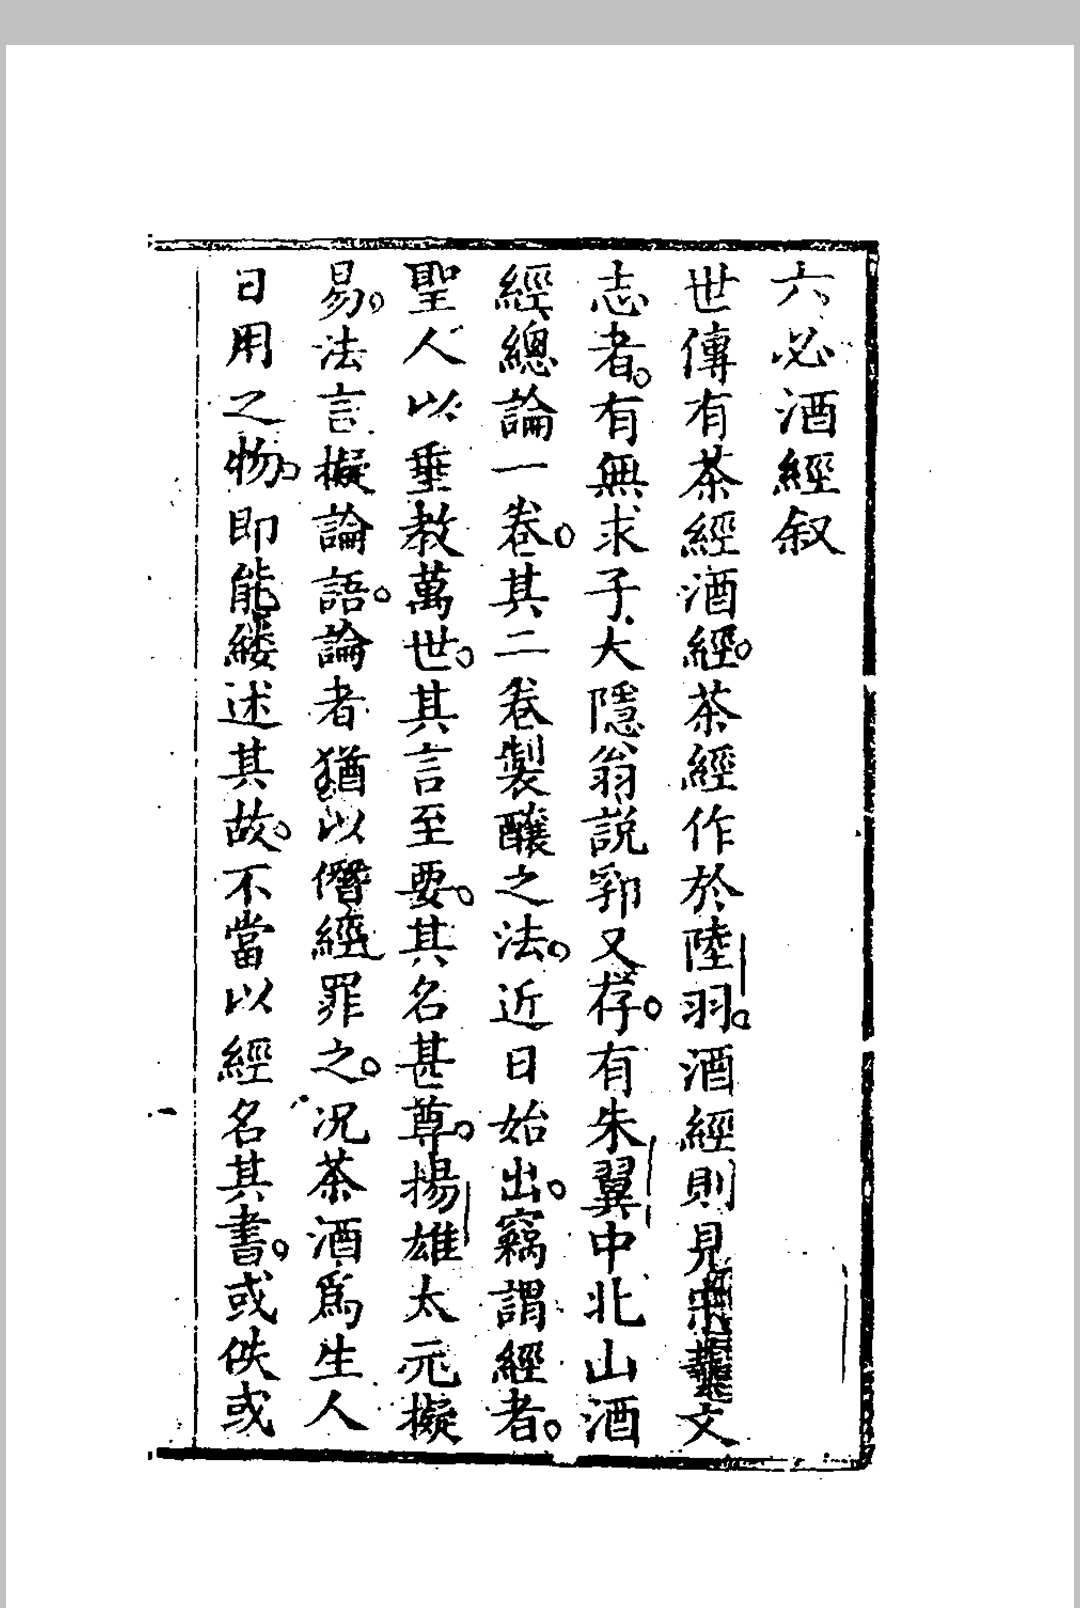 六必酒經叙
世傳有茶經酒經茶經作於陸羽酒經則見宋藝文
志者有無求子大隱翁說郛又存有朱翼中北山酒
經總論一卷其二卷製釀之法近日始出竊謂經者
聖人以垂教萬世其言至要其名甚尊揚雄太元擬
易法言擬論語論者猶以僭經罪之况茶酒爲生人
日用之物即能縷述其故不當以經名其書或佚或